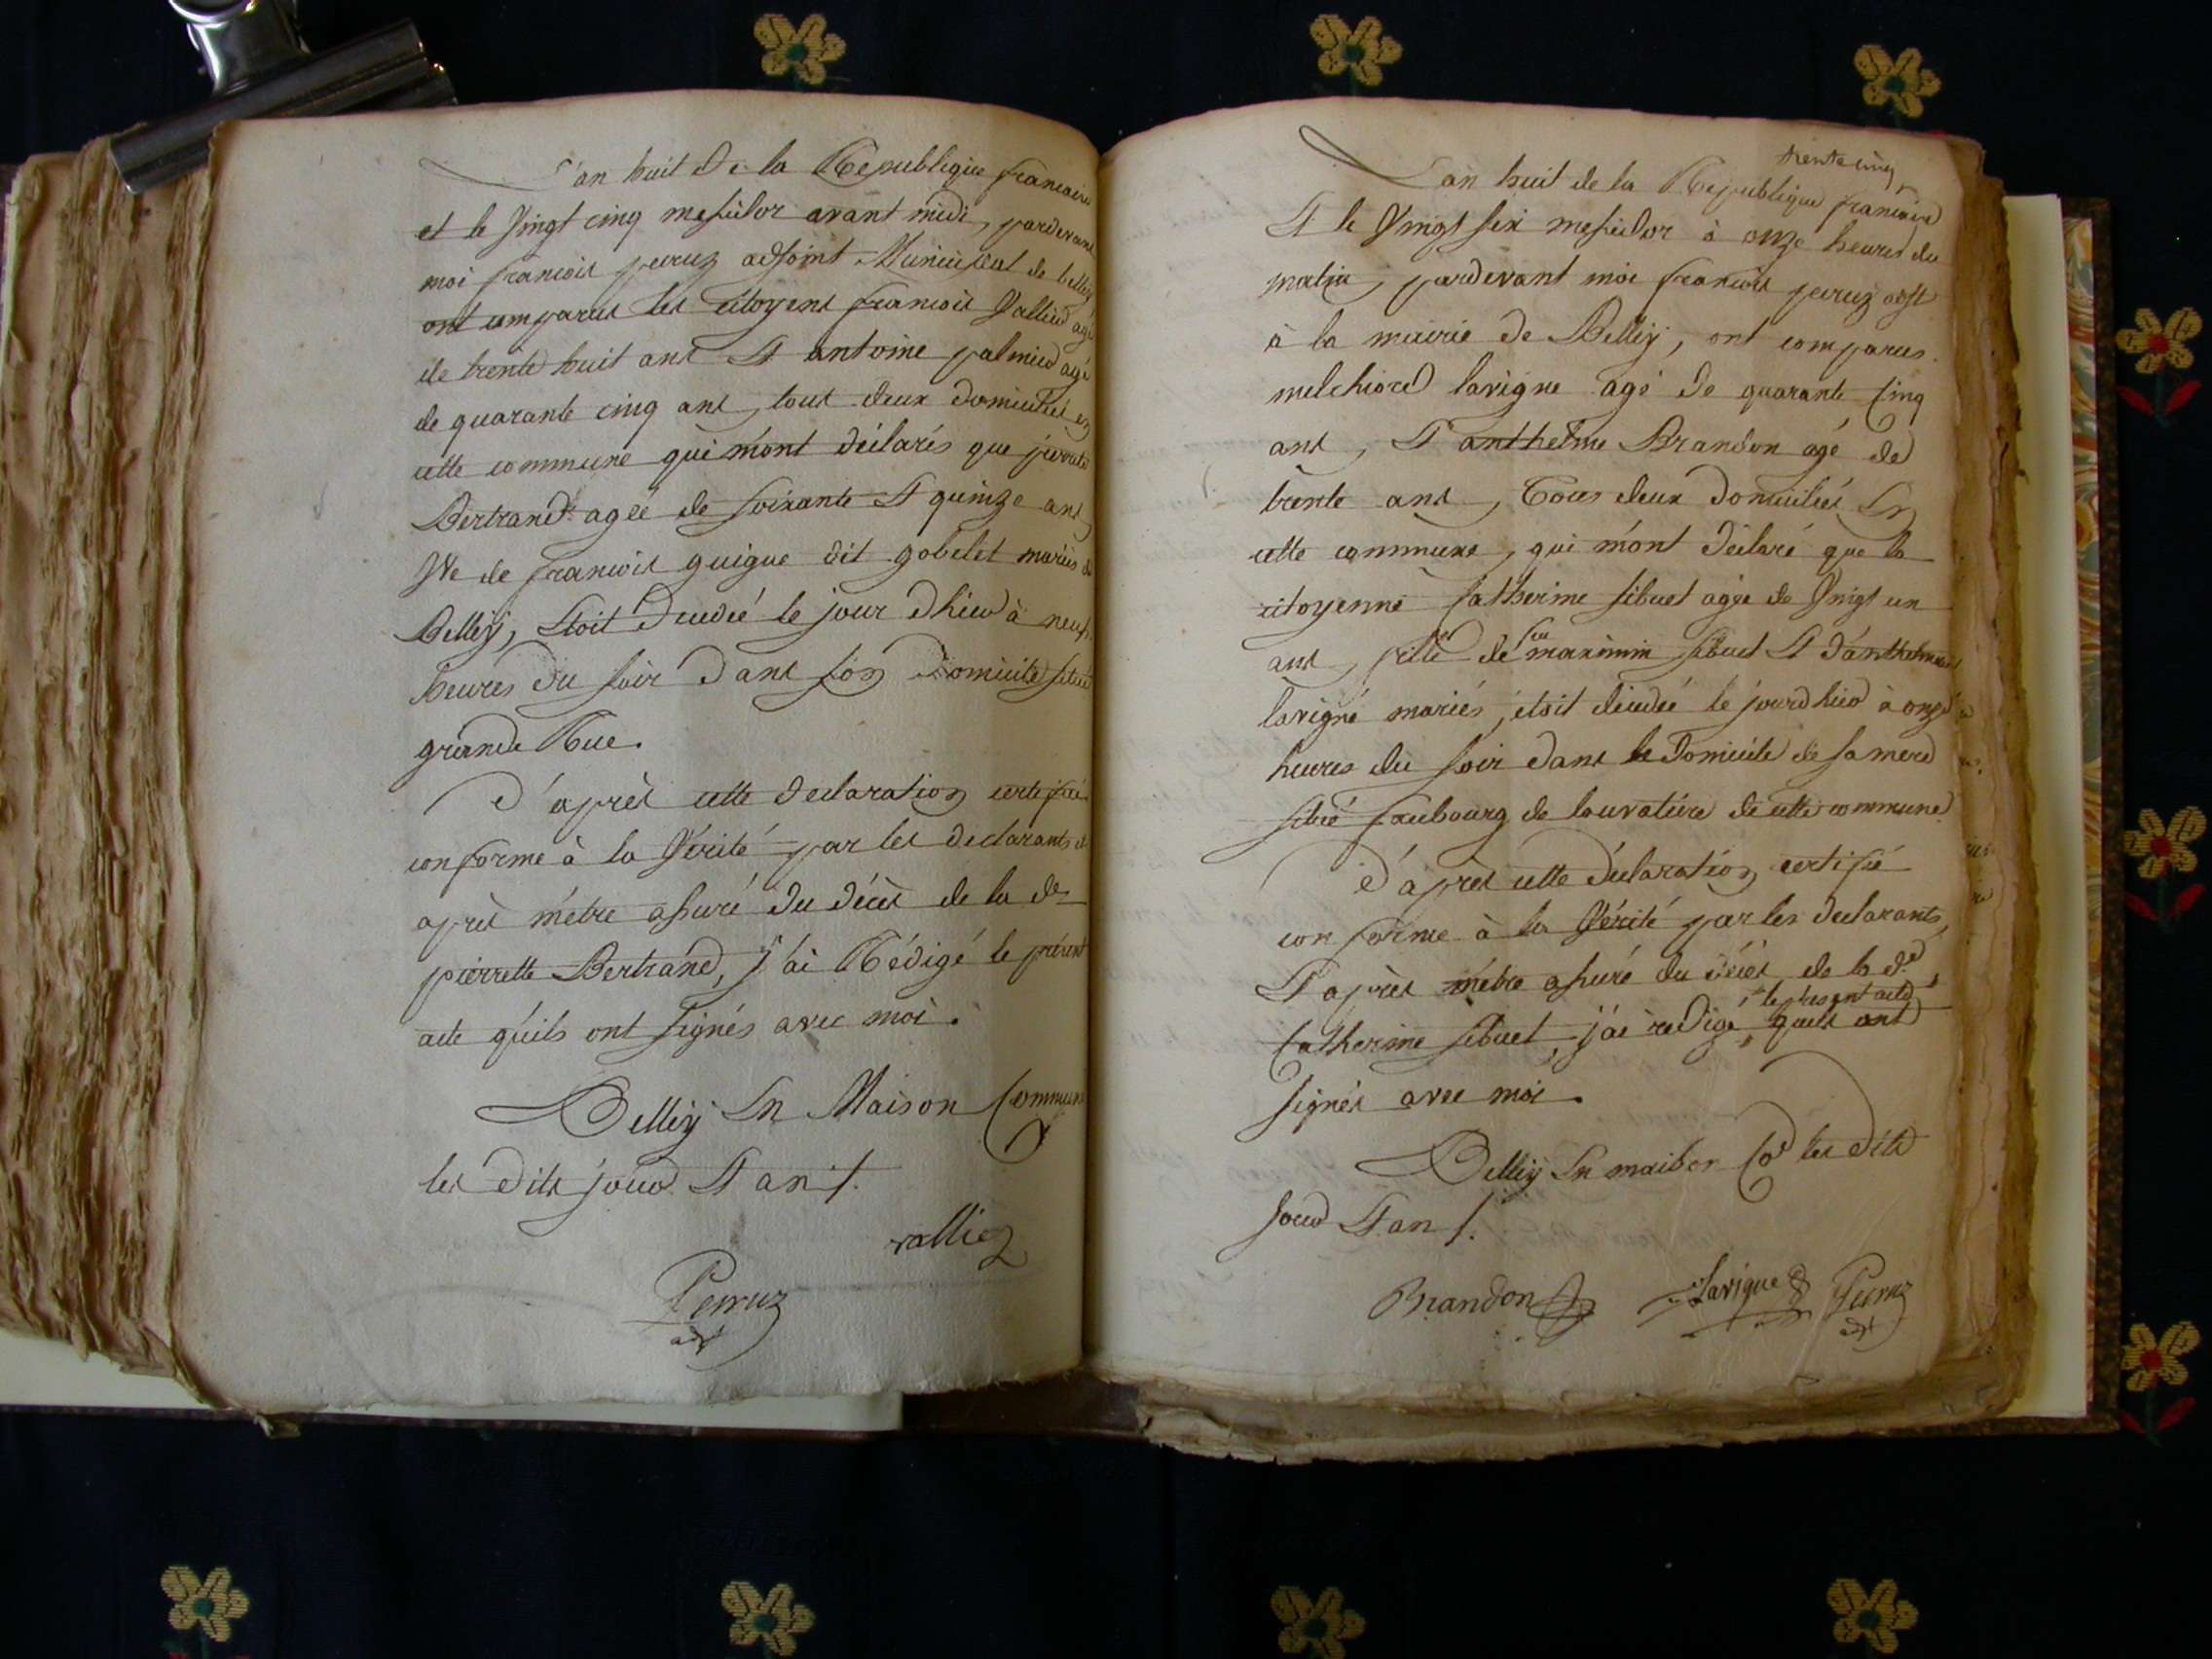 L'an huit De la Republique francaise
et le Vingt cinq messidor avant midi, pardevant
moi francois peruz adjoint Municipal de belley
ont comparus les citoyens francois Vallier agé
de trente huit ans Et antoine palmier agé
de quarante cinq ans, tous deux domiciliés en
cette commune qui m'ont déclarés que pierrette
Bertrand agée de soixante Et quinze ans
Ve de francois guigue dit gobelet mariés de
Belley, Etoit decedée le jour d'hier à neuf
heures du soir dans son domicile situé
grande Rue.
D'après cette declaration certifiée
conforme à la Vérité par les declarants et
après m'etre assuré du décès de la de
pierrette Bertrand, j'ai Rédigé le présent
acte qu'ils ont signés avec moi.
Belley En Maison Commune
les dits jour Et an /.
vallier
Perruz
adjt
trente cinq
L'an huit de la Republique francaise
Et le Vingt six messidor à onze heures du
matin, pardevant moi francois peruz adjt
à la mairie de Belley, ont comparus
melchior lavigne agé de quarante Cinq
ans, Et anthelme Brandon agé de
trente ans, Tous deux domiciliés En
cette commune, qui m'ont déclaré que la
citoyenne Catherine sibuet agée de Vingt un
ans, fille de feu maximin sibuet Et d'anthelmette
lavigne mariés, étoit décedée le jourd'hier à onze
heures du soir dans le Domicile de sa mere
situé faubourg de louvatiere de cette commune.
D'après cette déclaration certifié
conforme à la Vérité par les declarants,
Et après m'etre assuré du décès de la de
Catherine sibuet, j'ai redigé, le present acte, quils ont
signés avec moi.
Belley En maison Ce les dits
jour Et an /.
Brandon Lavigne Perruz
adjt